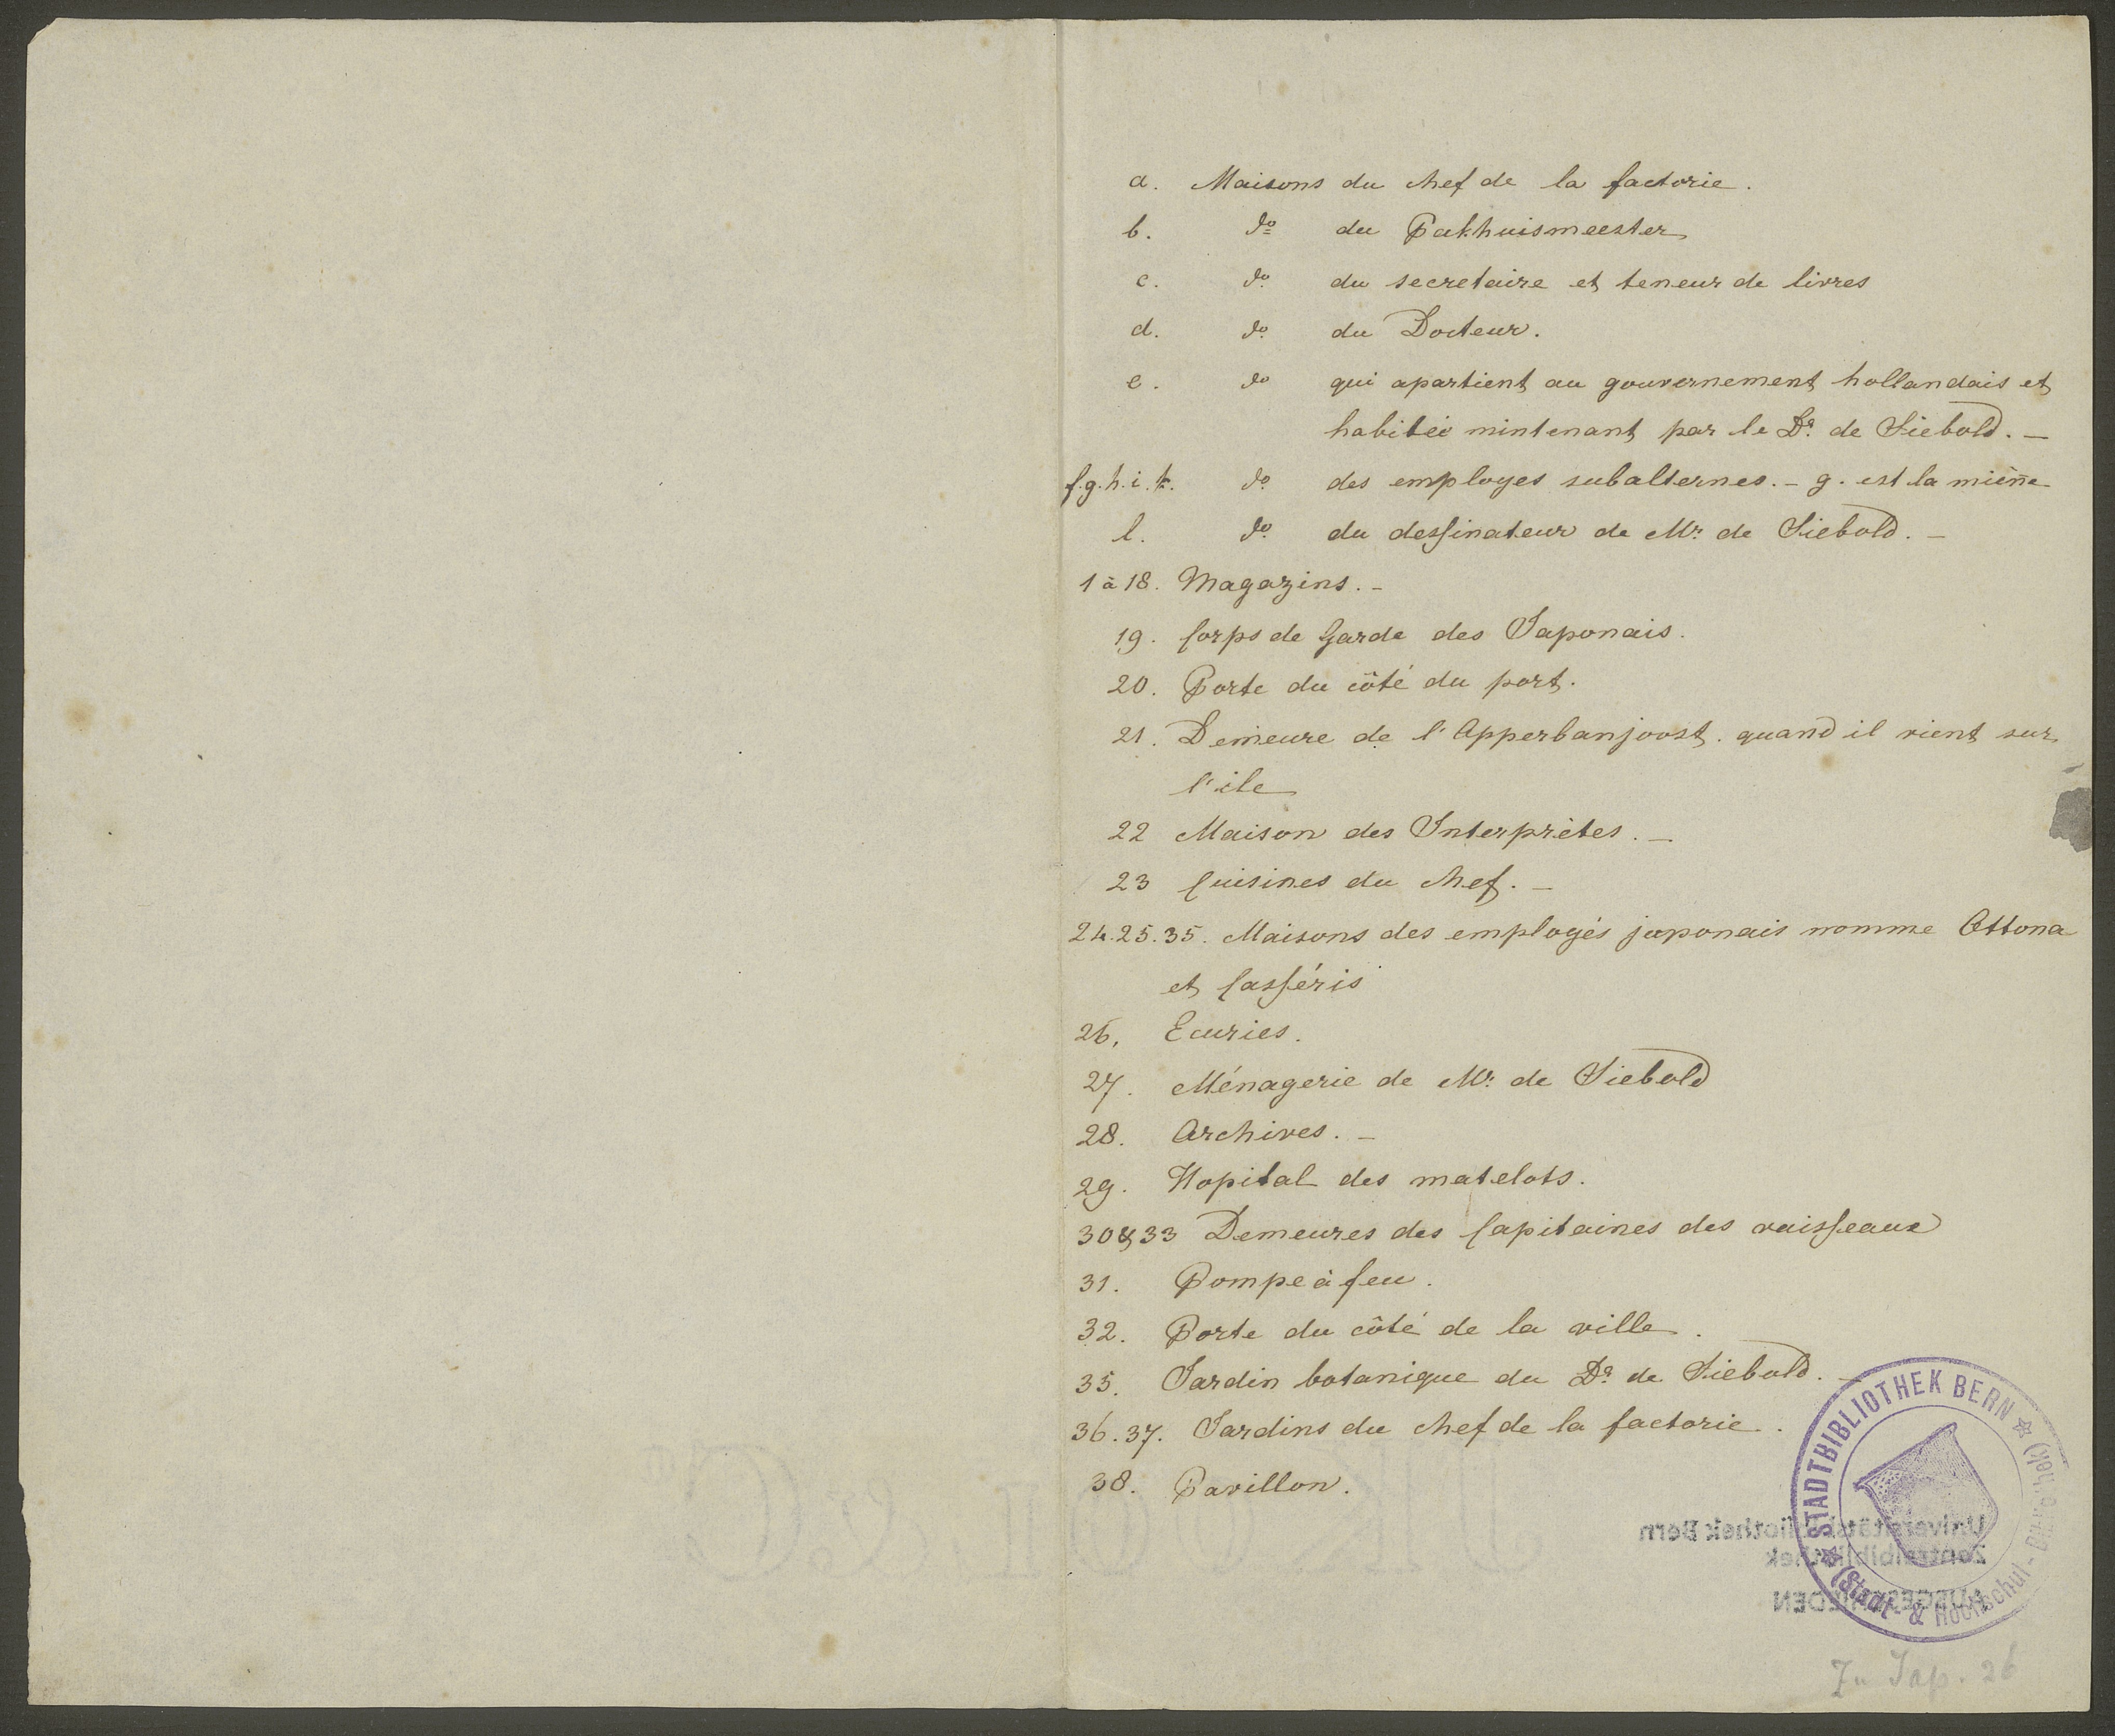 a. Maisons du chef de la factorie.
b. do du Pakhuismeester
c. do du secretaire et teneur de livres
d. do du Docteur.
e. do qui apartient au gouvernement hollandais et
habitée mintenant par le Dr. de Siebold. —
f. g. h. i. k. do des employes subalternes. – g. est la mienne
l. do du dessinateur de Mr. de Siebold. –
1 à 18. Magazins. –
19. Corps de Garde des Japonais.
20. Porte du côté du port.
21. Demeure de l'Apperbanjoost. quand il vient sur
l'ile
22 Maison des Interprètes. —
23 Cuisines du chef. —
24. 25. 35. Maisons des employés japonais nomme Ottona
et Casséris
26. Ecuries.
27. Ménagerie de Mr. de Siebold
28. Archives. –
29. Hopital des matelots.
30 & 33 Demeures des Capitaines des vaisseaux
31. Pompe à feu.
32. Porte du côté de la ville.
35. Jardin botanique du Dr. de Siebold. –
36. 37. Jardins du chef de la factorie.
38. Pavillon.
STADTBIBLIOTHEK BERN
(Stadt- & Hochschul-Bibliothek)
Universitätsbibliothek Bern
Zentralbibliothek
AUSGESCHIEDEN
Zu Jap. 26